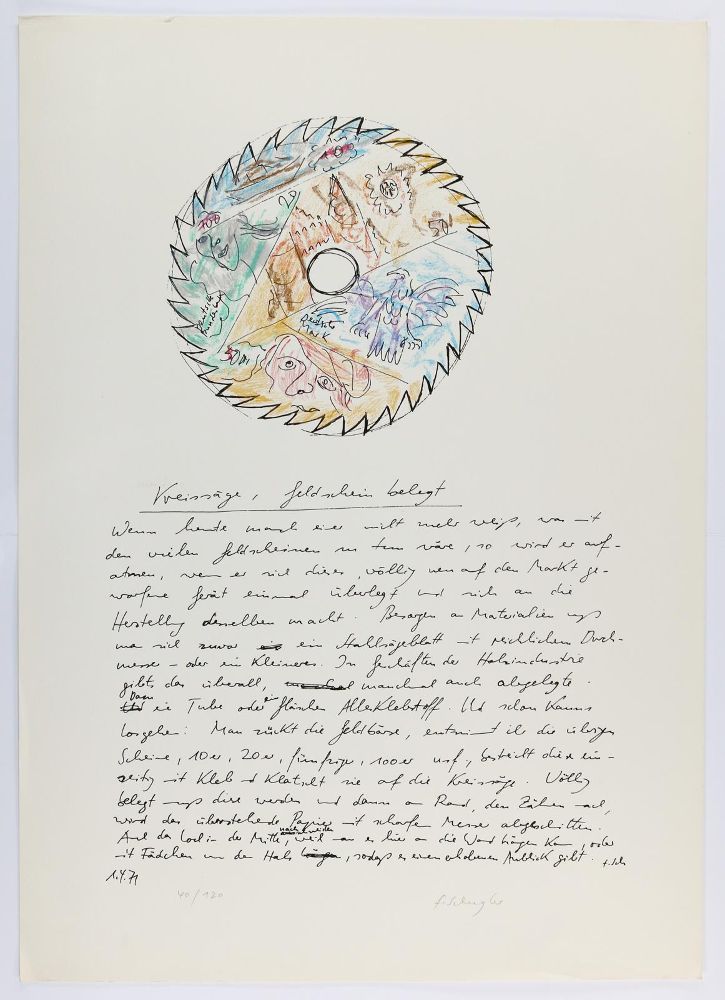 10
20
100
50
Deutsche
Bundesbank
Deutsche
Mark
50 M
Kreissäge, Geldschein belegt
Wenn heute manch einer nicht mehr weiß, was mit
den vielen Geldscheinen zu tun wäre, so wird er auf-
atmen, wenn er sich dieses, völlig neu auf den Markt ge-
worfene Gerät einmal überlegt und sich an die
Herstellung desselben macht. Besorgen an Materialien muß
man sich zuvor ein Stahlsägeblatt mit reichlichem Durch-
messer – oder ein Kleineres. In Geschäften der Holzindustrie
gibts das überall, manchmal auch abgelegte.
Dann eine Tube oder ein Fläschen AllesKlebstoff. Und schon kanns
losgehen: Man zückt die Geldbörse, entnimmt ihr die übrigen
Scheine, 10er, 20er, fünfziger, 100er usf, bestreicht diese ein-
seitig mit Kleb und klatscht sie auf die Kreissäge. Völlig
belegt muß diese werden und dann am Rand, den Zähnen nach,
wird das überstehende Papier mit scharfem Messer abgeschnitten.
Auch das Loch in der Mitte nachschneiden, weil man es hier an die Wand hängen kann, oder
mit Fädchen um den Hals, sodaß es einen erhabenen Anblick gibt.
1.4.71
40/120